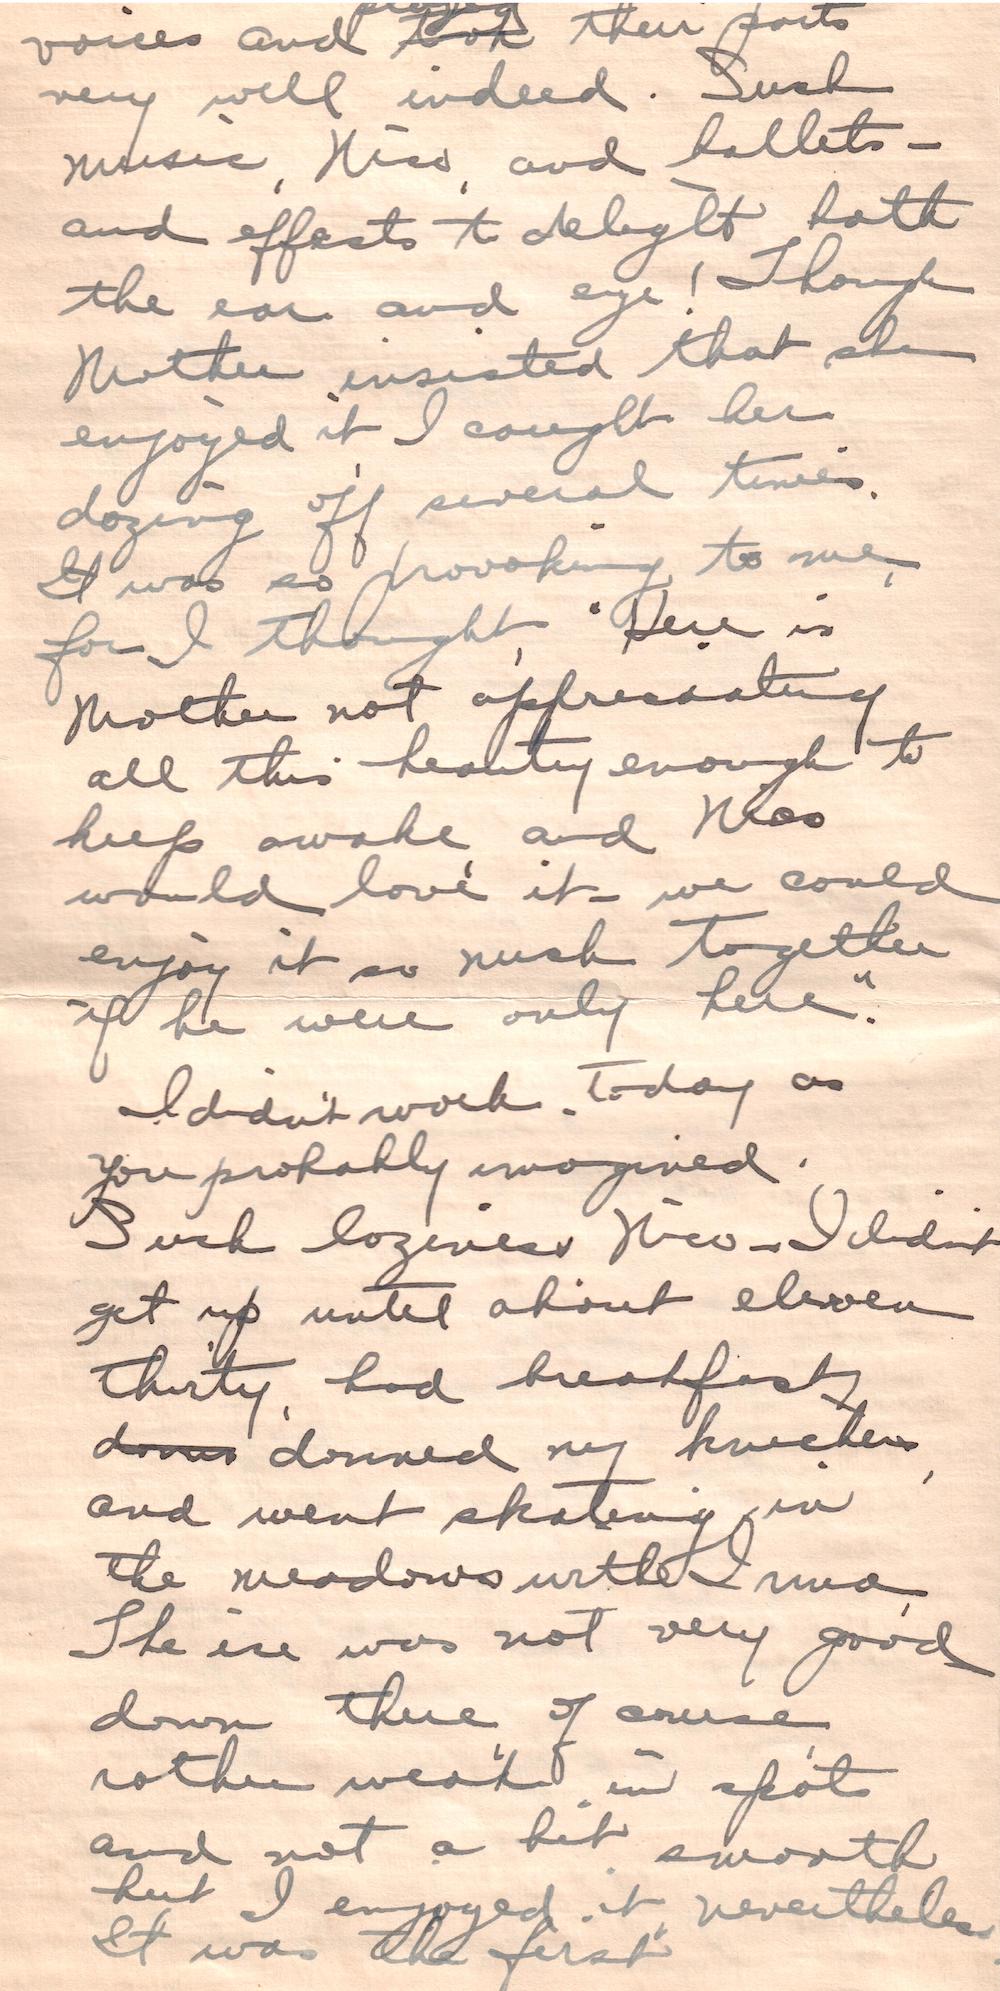 played
voices and took their parts
very well indeed. Such
music, Nico, and ballets -
and effects to delight both
the ear and eye! Though
Mother insisted that she
enjoyed it I caught her
dozing off several times.
It was so provoking to me,
for I thought, "Here is
Mother not appreciating
all this beauty enough to
keep awake, and Nico
would love it - we could
enjoy it so much together
if he were only here".
I didn't work today as
you probably imagined.
Such laziness Nico - I didn't
get up until about eleven
thirty, had breakfast,
donned my knickers,
and went skating in
the meadows with Irma.
The ice was not very good
down there, of course,
rather weak in spots
and not a bit smooth
but I enjoyed it, nevertheless.
It was the first